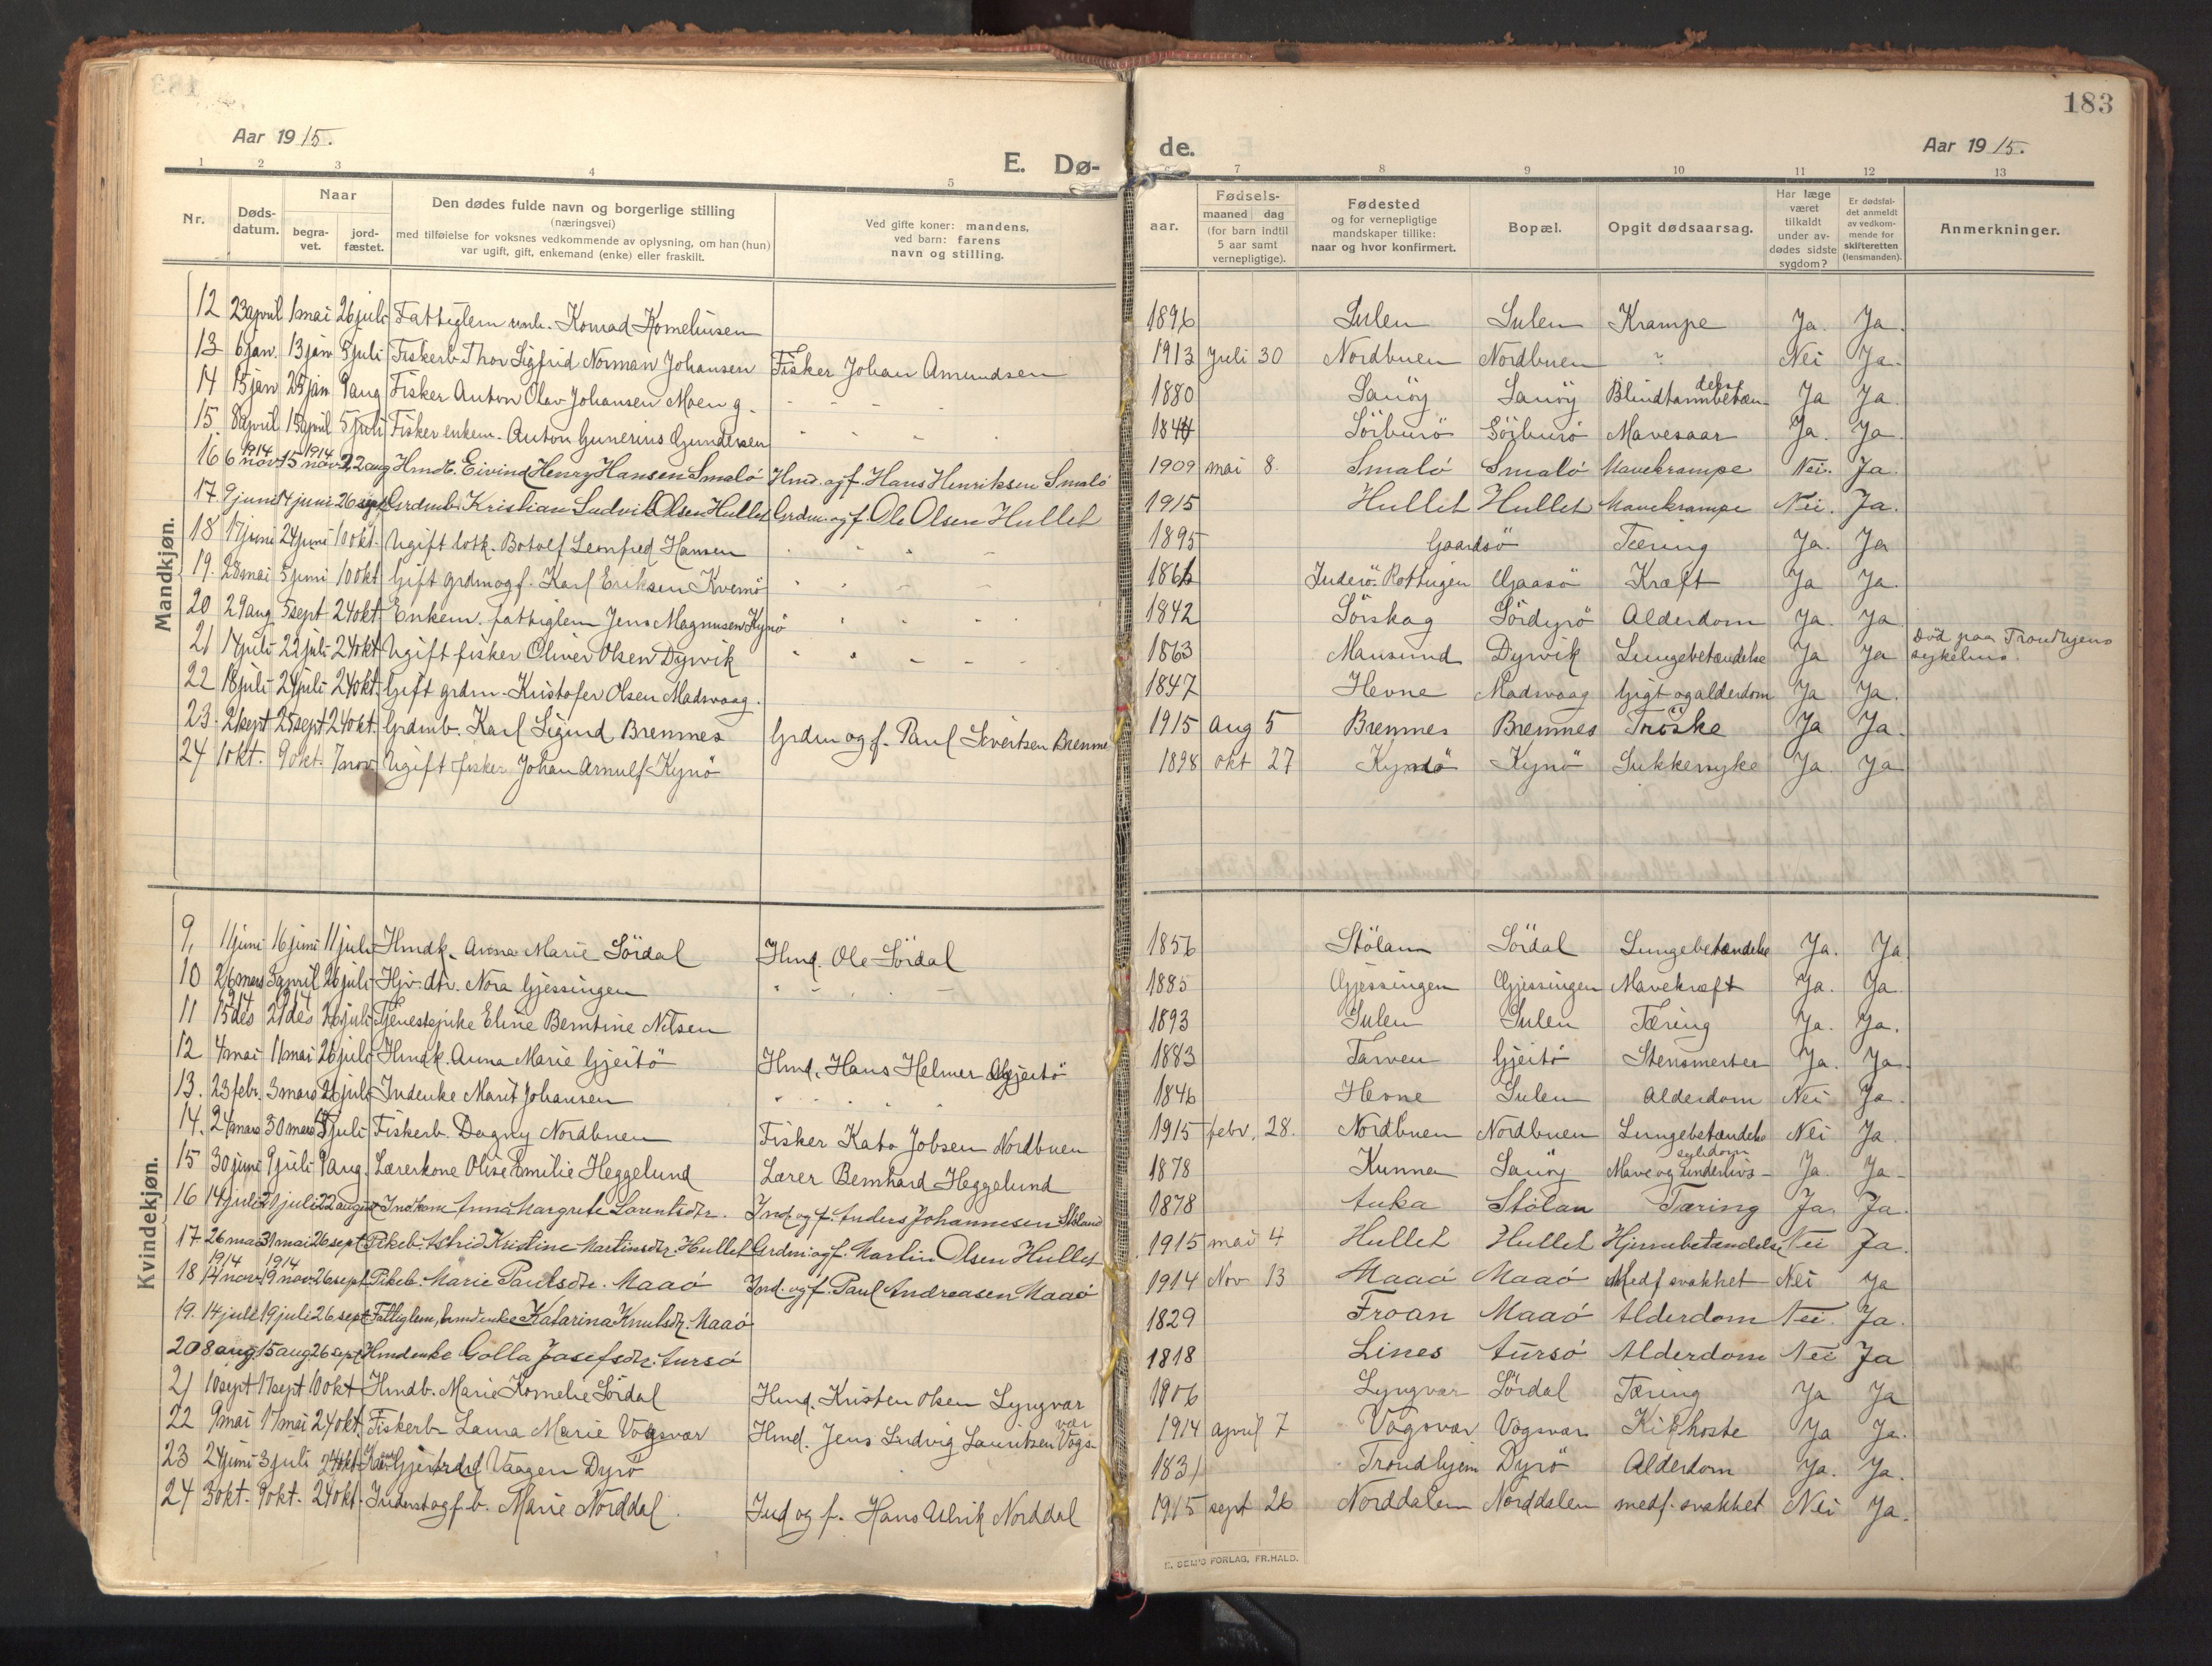 183
Aar 1915.
E. Dø-
de.
Aar 1915.
1 2 3 4 5
7 8 9 10 11 12 13
Nr.
Døds-
datum.
Naar
begra-
vet.
jord-
fæstet.
Den dødes fulde navn og borgerlige stilling
(næringsvei)
med tilføielse for voksnes vedkommende av oplysning, om han (hun)
var ugift, gift, enkemand (enke) eller fraskilt.
Ved gifte koner: mandens,
ved barn: farens
navn og stilling.
aar.
Fødsels-
maaned dag
(for barn indtil
5 aar samt
vernepligtige).
Fødested
og for vernepligtige
mandskaper tillike:
naar og hvor konfirmert.
Bopæl.
Opgit dødsaarsag.
Har læge
været
tilkaldt
under av-
dødes sidste
sygdom?
Er dødsfal-
det anmeldt
av vedkom-
mende for
skifteretten
(lensmanden).
Anmerkninger.
Mandkjøn.
12 23april 1mai 26juli Fattiglem unk. Konrad Korneliusen 1896 Sulen Sulen Krampe Ja. Ja.
13 6jan. 13jan 5juli Fiskerb. Thor Sigfrid Norman Johansen Fisker Johan Amundsen 1913 Juli 30 Nordbuen Nordbuen ? Nei Ja.
14 15jan 25jan 9aug Fisker Anton Olav Johansen Moen g. 1880 Sauøy Sauøy Blindtarmbetæn-delse Ja Ja.
15. 8april 15april 5juli Fisker enkem. Anton Gunerius Gundersen 1844 Sörburö Sörburö Mavesaar Ja. Ja.
16 6nov 1914 15nov 1914 22aug Hmdb. Eivind Henry Hansen Smalö Hmd. og f. Hans Henriksen Smalö 1909 mai 8. Smalö Smalö Mavekrampe Nei. Ja.
17. 9juni 14juni 26sept Grdmb. Kristian Ludvik Olsen Hullet Grdm. og f. Ole Olsen Hullet 1915 Hullet Hullet Mavekrampe Nei. Ja.
18 17juni 24juni 10okt. Ugift losk. Botolf Leonfred Hansen 1895 Gaardsö Tæring Ja. Ja
19. 28mai 5juni 10okt Gift grdm og f. Karl Eriksen Kvernö Inderö. Rottingen Gaasö Kræft Ja Ja.
20 29aug 5sept 24okt Enkem. fattiglem Jens Magnusen Kynö 1842 Sörskag Sördyrö Alderdom Ja. Ja
21 14juli 22juli 24okt Ugift fisker Oliver Olsen Dyrvik 1863 Mausund Dyrvik Lungebetændelse Ja Ja Död paa Trondhjems sykehus.
22 18juli 24juli 24okt. Gift grdm. Kristofer Olsen Madsvaag. 1847 Hevne Madsvaag Gigt og alderdom Ja Ja.
23. 21sept 25sept 24okt. Grdmb. Karl Sigurd Bremnes Grdm og f. Paul Sivertsen Bremne 1915 Aug 5 Bremnes Bremnes Tröske Ja Ja.
24 1okt. 9okt. 7nov Ugift fisker Johan Arnulf Kynö 1898 okt 27 Kynö Kynö Sukkersyke Ja. Ja
Kvindekjøn.
9, 11juni 16juni 11juli Hmdk. Anna Marie Sördal Hmd. Ole Sördal 1856 Stölan Sördal Lungebetændelse Ja. Ja
10 26mars 5april 26juli Hjv. dtr. Nora Gjessingen 1885 Gjessingen Gjessingen Mavekræft Ja. Ja.
11 15des 14 21des 14 26juli Tjenestepike Eline Berntine Nilsen 1893 Sulen Sulen Tæring Ja. Ja.
12 4mai 11mai 26juli Hmdk. Anna Marie Gjeitö Hmd. Hans Helmer Gjeitö 1883 Tarven Gjeitö Stensmerter Ja. Ja.
13. 23febr. 3mars 26juli Indenke Marit Johansen 1846 Hevne Sulen Alderdom Nei Ja.
14. 24mars 30mars 5juli Fiskerb. Dagny Nordbuen Fisker Kato Jobsen Nordbuen 1915 febr. 28. Nordbuen Nordbuen Lungebetændels Nei Ja
15 30juni 9juli 9aug. Lærerkone Olise Emilie Heggelund Lærer Bernhard Heggelund 1878 Kunna Sauöy Mave og underlivs-sykdom Ja. Ja-
16 14juli 21juli 22august Indkone Anna Margrete Larentsdtr. Ind. og f. Anders Johannesen Stöland 1878 Auka Stölan Tæring Ja. Ja.
17 26mai 31mai 26sept. Pikeb. Astrid Kristine Martinsdtr. Hullet Grdm. og f. Martin Olsen Hullet 1915 mai 4 Hullet Hullet Hjernebetændelse Nei Ja.
18 14nov 1914 19nov 1914 26sept Pikeb. Marie Paulsdtr. Maaö Ind. og f. Paul Andreasen Maaö 1914 Nov 13 Maaö Maaö Medf. svakhet Nei Ja
19. 14juli 19juli 26sept Fattiglem, hmdenke Katarina Knutsdtr. Maaö 1829 Froan Maaö Alderdom Nei. Ja.
20 8aug. 15aug. 26sept Hmdenke Golla Josefsdtr. Aursö 1818 Lines Aursö Alderdom Nei Ja
21 10sept 17sept 10okt Hmdb. Marie Kornelie Sördal Hmd. Kristen Olsen Lyngvær 1906 Lyngvær Sördal Tæring Ja Ja
22 9mai 17mai 24okt. Fiskerb. Laura Marie Vogsvær Hmd. Jens Ludvig Lauritsen Vogs-vær 1914 April 7 Vogsvær Vogsvær Kikhoste Ja Ja.
23 24juni 3juli 24okt. Gjertrud Vaagen Dyrö 1831 Trondhjem Dyrö Alderdom Ja. Ja.
24 3okt. 9okt. 24okt. Inderst og f. b. Marie Norddal. Ind og f. Hans Ulrik Norddal 1915 sept 26 Norddalen Norddalen medf. svakhet Nei Ja.
E. SEM'S FORLAG, FR.HALD.